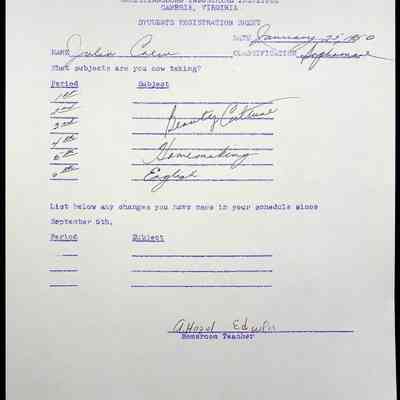 CHRISTIANSBURG INDUSTRIAL INSTITUTE
CAMBRIA, VIRGINIA
STUDENTS REGISTRATION SHEET
DATE January 23 1950
NAME Julia
CLASSIFICATION Sophomore
What subjects are you now taking?
Period Subject
1st
2nd
3rd Beauty Culture
4th
5th Homemaking
6th English
List below any changes you have made in your schedule since
September 5th,
Period Subject
A Hazel Edwin
Homeroom Teacher